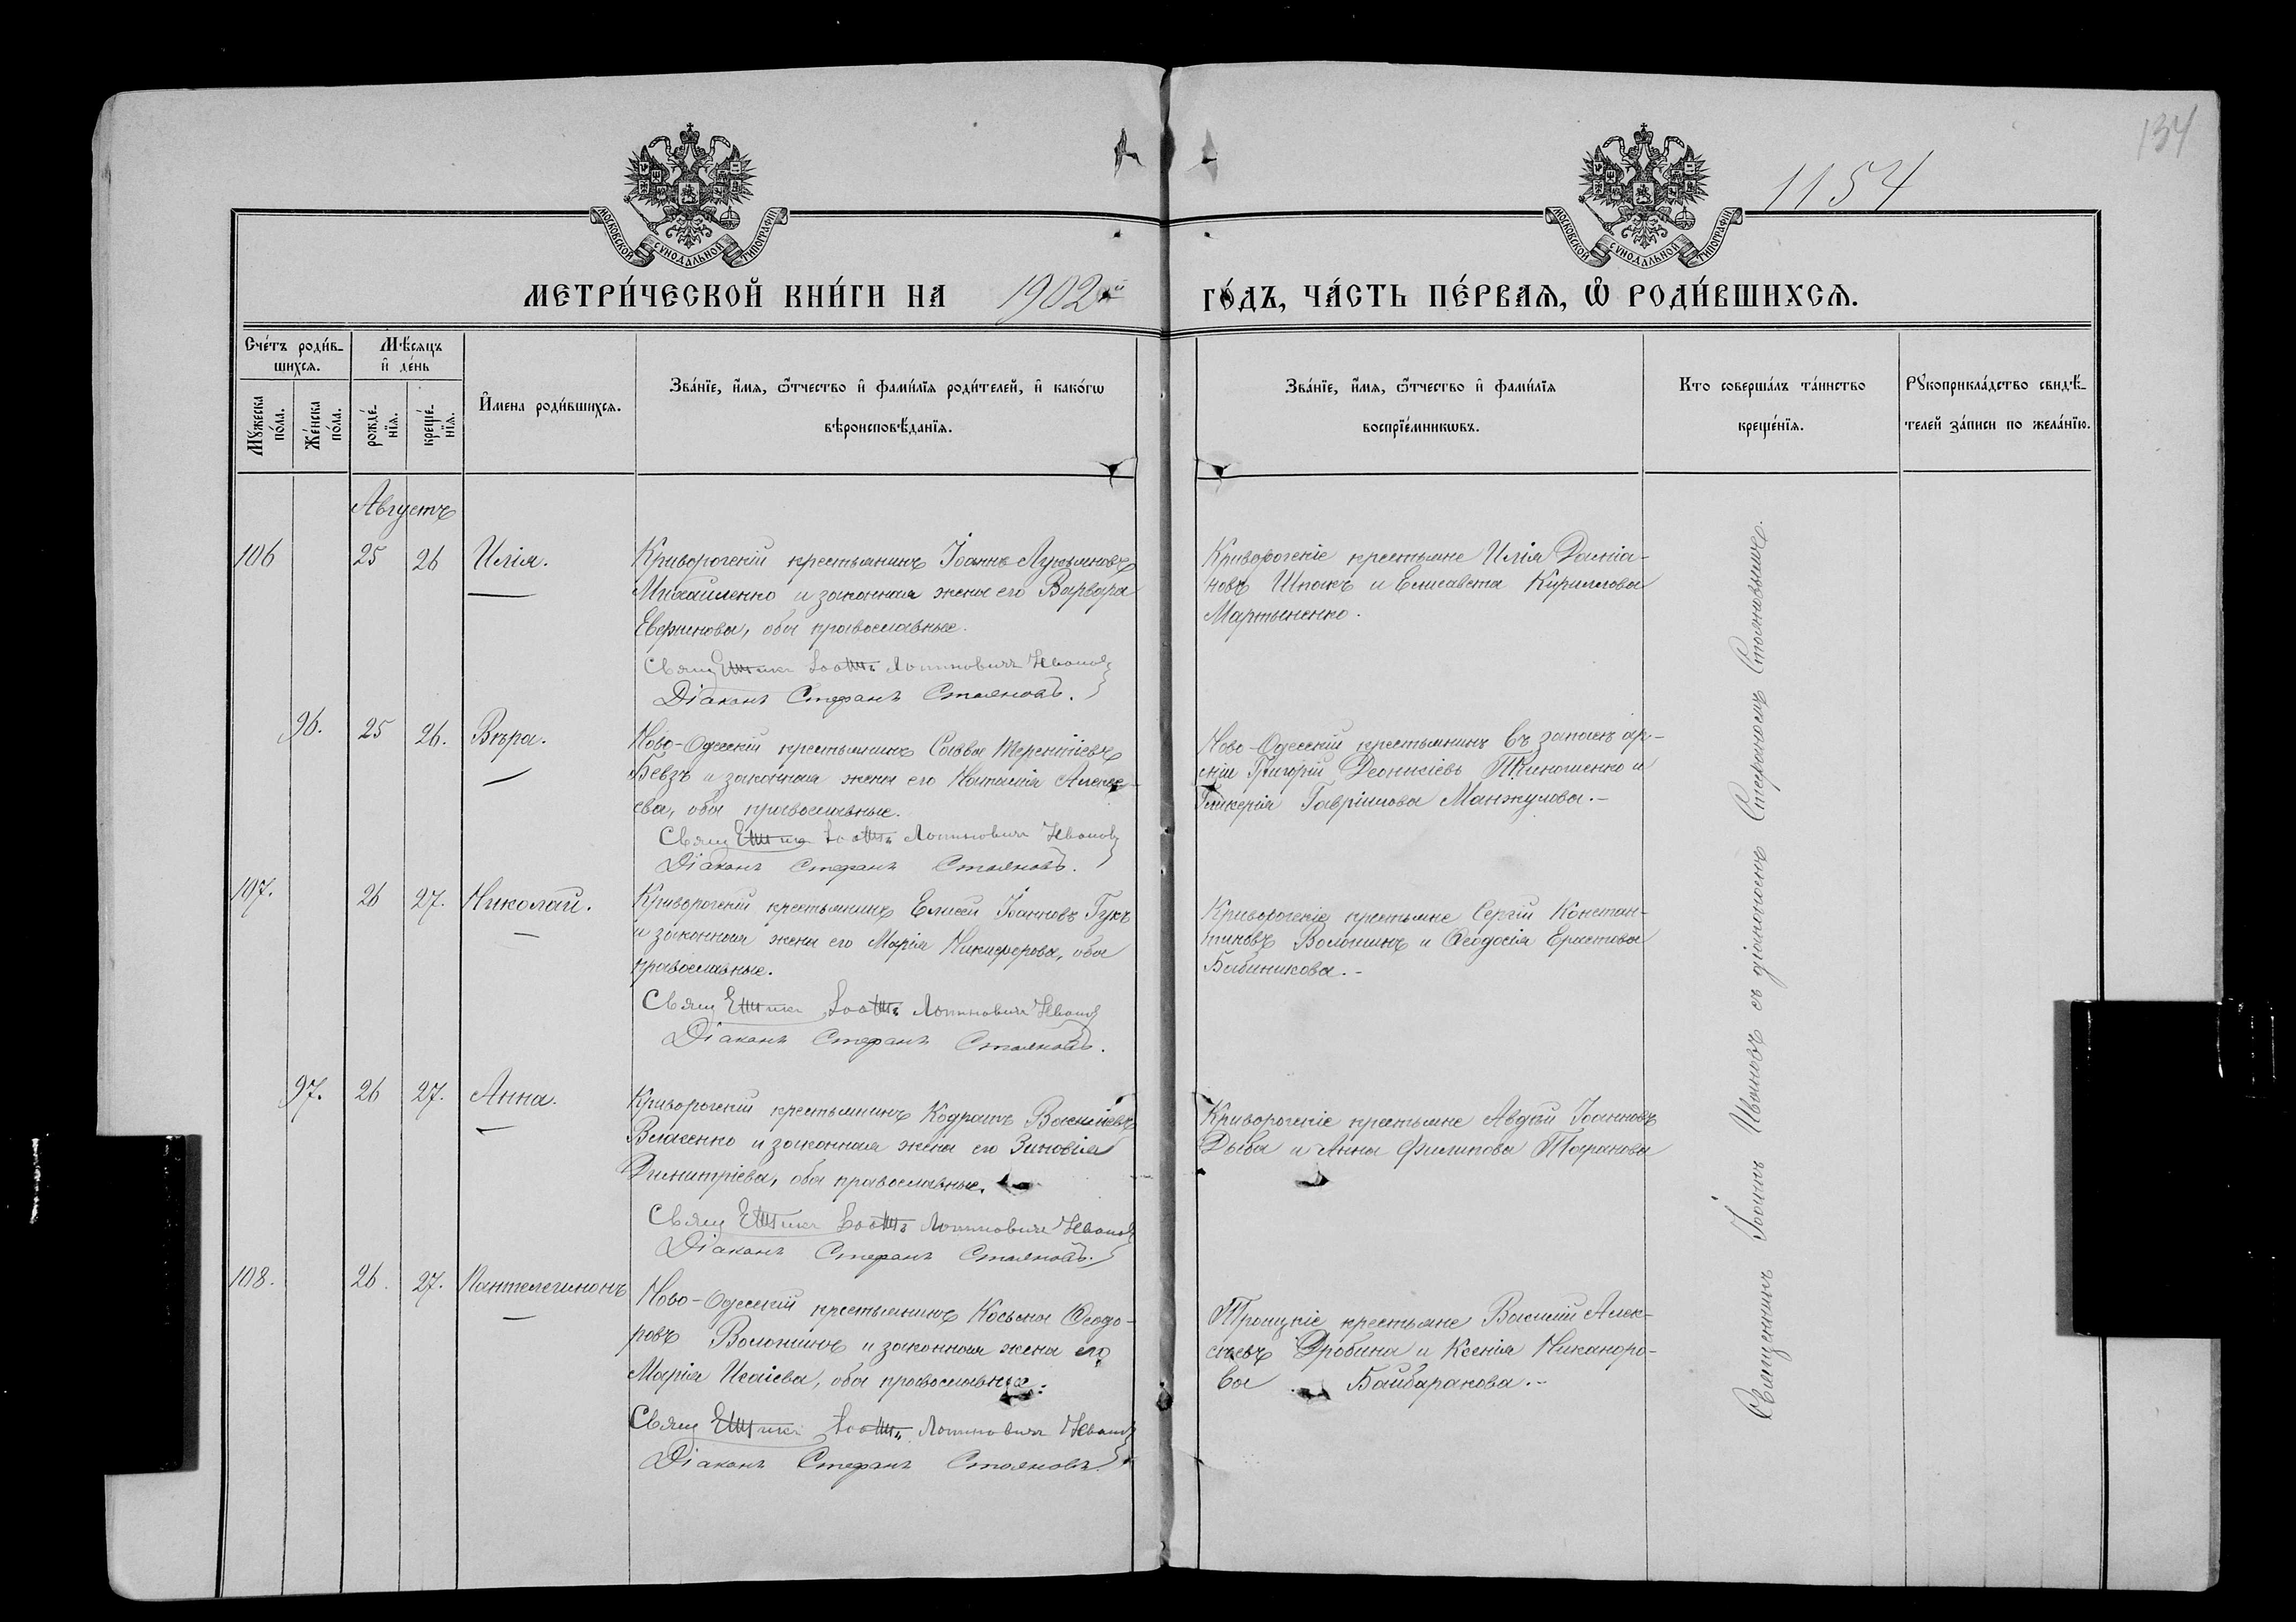 134
1154
МОСКОВСКОЙ СУНОДАЛЬНОЙ ТИПОГРАФІИ
МОСКОВСКОЙ СУНОДАЛЬНОЙ ТИПОГРАФІИ
МЕТРИ́ЧЕСКОЙ КНИ́ГИ НА 1902й
ГО́ДЪ, ЧА́СТЬ ПЕ́РВАЯ, Ѡ РОДИ́ВШИХСЯ.
Сче́тъ роди́в-
шихся.
Му́жеска
по́ла.
Же́нска
по́ла.
Мѣ́сяцъ
и де́нь
рожде́-
нїя.
креще́-
нїя.
И҆мена роди́вшихся.
Зва́нїе, и҆́мя, ѻ҆́тчество и҆ фами́лїя роди́телей, и҆ како́гѡ
вѣроисповѣ́данїя.
Зва́нїе, и҆́мя, ѻ҆́тчество и҆ фами́лїя
воспрїе́мникѡвъ.
Кто соверша́лъ та́инство
креще́нїя.
Рꙋкоприкла́дство свидѣ́-
телей за́писи по жела́нїю.
Августъ
106 25 26 Илія.
Криворогскій крестьянинъ Іоаннъ Лукьяновъ
Михайленко и законная жена его Варвара
Евфимова, оба православные.
Свящ Іоаннъ Логиновичъ Ивановъ
Діаконъ Стефанъ Стояновъ.
Криворогскіе крестьяне Илія Даміа-
новъ Шпакъ и Елисавета Кириллова
Мартыненко.
96. 25 26. Вѣра.
Ново-Одесскій крестьянинъ Савва Терентіевъ
Бевзъ и законная жена его Наталія Алексѣ-
ева, оба православные.
Свящ Іоаннъ Логиновичъ Ивановъ
Діаконъ Стефанъ Стояновъ.
Ново-Одесскій крестьянинъ въ запасѣ ар-
міи Григорій Деонисіевъ и
Гликерія Гавріилова Манжулова.-
107. 26 27. Николай.
Криворогскій крестьянинъ Елисей Іоанновъ Гукъ
и законная жена его Марія Никифорова, оба
православные.
Свящ Іоаннъ Логиновичъ Ивановъ
Діаконъ Стефанъ Стояновъ.
Криворогскіе крестьяне Сергій Констан-
тиновъ Волошинъ и Ѳеодосія Ерастова
Бабиникова.-
97. 26 27. Анна.
Криворогскій крестьянинъ Кодратъ Василіевъ
Власенко и законная жена его Зиновія
Димитріева, оба православные.
Свящ Іоаннъ Логиновичъ Ивановъ
Діаконъ Стефанъ Стояновъ.
Криворогскіе крестьяне Авдѣй Іоанновъ
Дыба и Анна Филипова Таранова
108. 26. 27. Пантелеимонъ
Ново-Одесскій крестьянинъ Косьма Ѳеодо-
ровъ Волошинъ и законная жена его
Марія Исаіева, оба православные.
Свящ Іоаннъ Логиновичъ Ивановъ
Діаконъ Стефанъ Стояновъ.
Троицкіе крестьяне Василій Алек-
сѣевъ Дробина и Ксенія Никаноро-
ва Байбаракова.-
Священникъ Іоаннъ Ивановъ съ діакономъ Стефаномъ Стояновымъ.